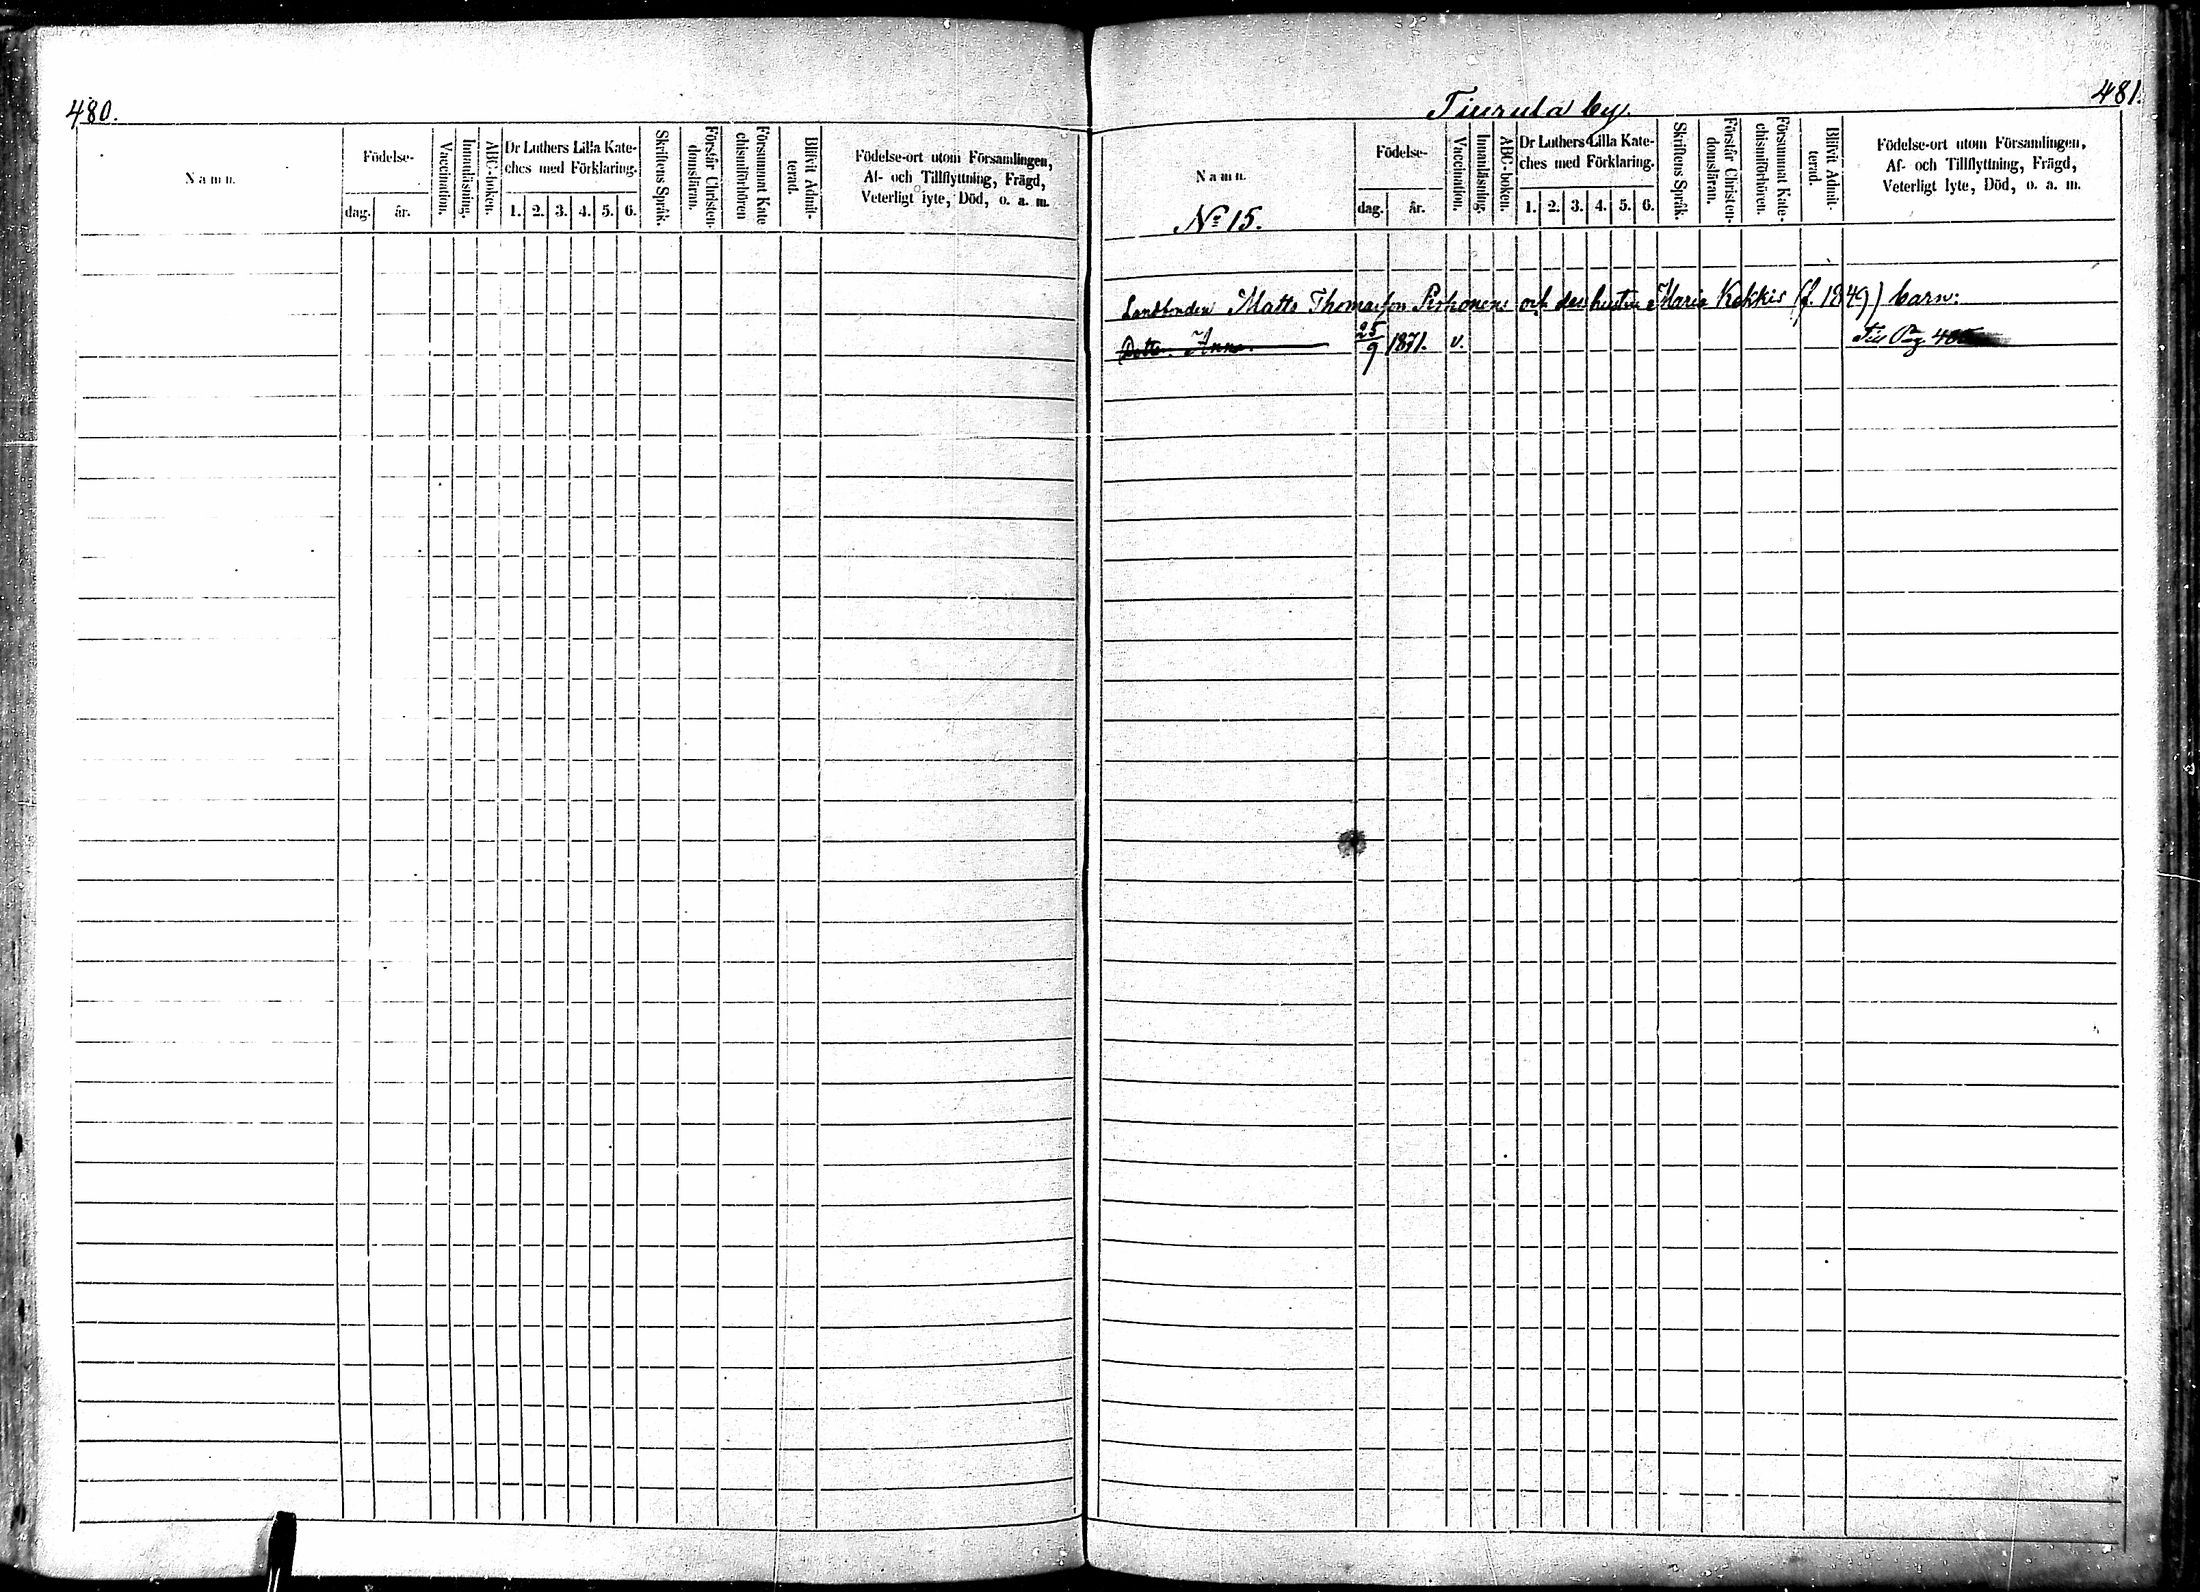 480.
Namn.
Födelse-
dag.
år.
Vaccination.
Innanläsning.
ABC-boken.
Dr Luthers Lilla Kate-
ches med Förklaring.
1. 2. 3. 4. 5. 6.
Skriftens Språk.
Förstår Christen-
domsläran.
Försummat Kate
chismiförhören
Blifvit Admit-
terad.
Födelse-ort utom Församlingen,
Af- och Tillflyttning, Frägd,
Veterligt lyte, Död, o. a. m.
481.
Tiurula by.
Namn.
No 15.
Födelse-
dag.
år.
Vaccination.
Innanläsning.
ABC-boken.
Dr Luthers Lilla Kate-
ches med Förklaring.
1. 2. 3. 4. 5. 6.
Skriftens Språk.
Förstår Christen-
domsläran.
Försummat Kate-
chismiförhören.
Blifvit Admit-
terad.
Födelse-ort utom Församlingen,
Af- och Tillflyttning, Frägd,
Veterligt lyte, Död, o. a. m.
Landbonden Matts Thomasson och des hustru Maria Kekkis (f. 1849) barn:
Dotter Anna. 25/9 1871. v. Till Pag.